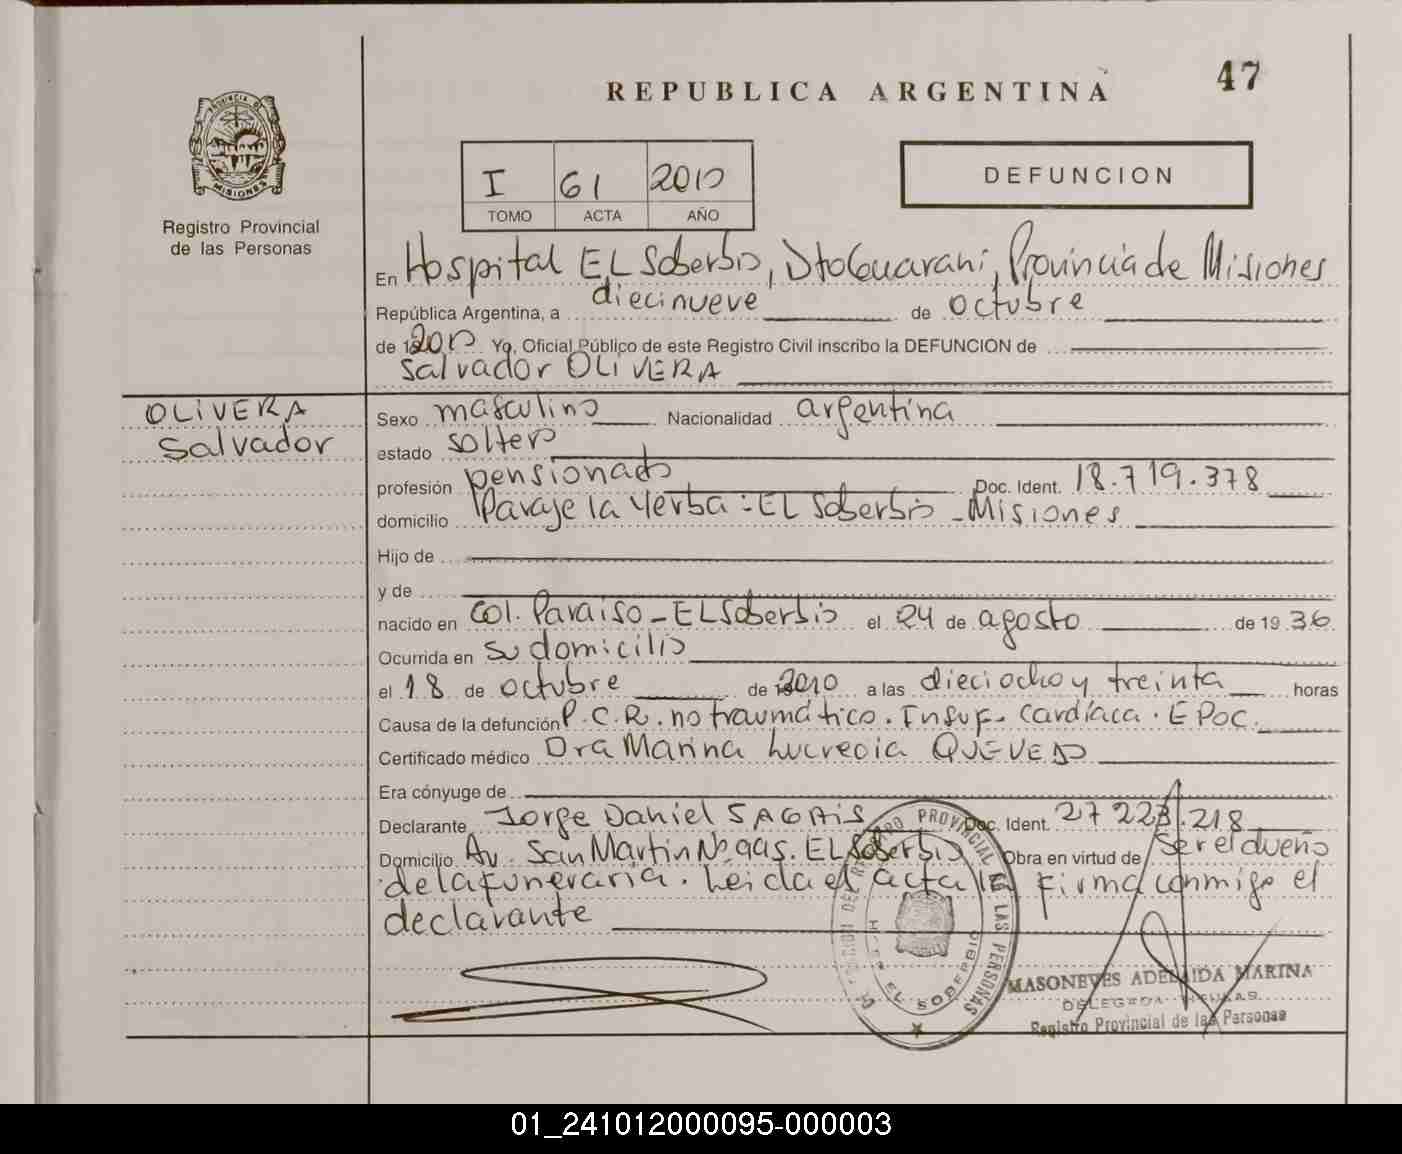 47
REPUBLICA ARGENTINA
PROVINCIA DE
MISIONES
Registro Provincial
de las Personas
I 61 2010
TOMO ACTA AÑO
DEFUNCION
En Hospital EL Soberbio, Dto Guarani, Provincia de Misiones
República Argentina, a diecinueve de octubre
de 2010 Yo, Oficial Público de este Registro Civil inscribo la DEFUNCION de
Salvador OLIVERA
OLIVERA
Salvador
Sexo masculino Nacionalidad argentina
estado soltero
profesión pensionado Doc. Ident. 18.719.378
domicilio Paraje la Yerba - EL Soberbio - Misiones
Hijo de
y de
nacido en Col. Paraiso - EL Soberbio el 24 de agosto de 1936
Ocurrida en su domicilio
el 18 de octubre de 2010 a las dieciocho y treinta horas
Causa de la defunción P.C.R. no traumático. Insuf. cardíaca. EPOC.
Certificado médico Dra Marina Lucrecia QUEVEDO
Era cónyuge de
Declarante Jorge Daniel Doc. Ident. 27 223.218
Domicilio Av. San Martin Nº 995. EL Soberbio Obra en virtud de ser el dueño
de la funeraria. Leida el acta la firma conmigo el
declarante
REGISTRO PROVINCIAL DE LAS PERSONAS
EL SOBERBIO
MASONEVES ADELAIDA MARINA
DELEGADA TITULAR
Registro Provincial de las Personas
01_241012000095-000003